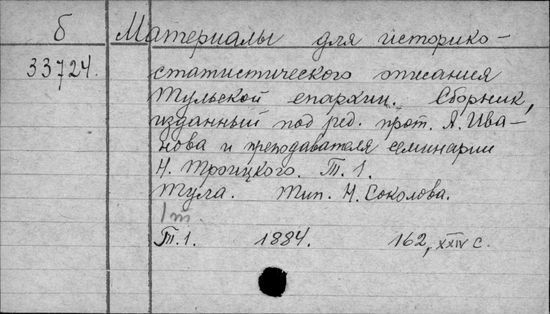 б Материалы для историко-
33724. статистического описания
Тульской епархии. Сборник,
изданный под ред. прот. А. Ива-
нова и преподавателя семинарии
Н. Троицкого. Т. 1.
Тула. Тип. Н. Соколова.
1 т.
Т. 1. 1884. 162, XXIV с.